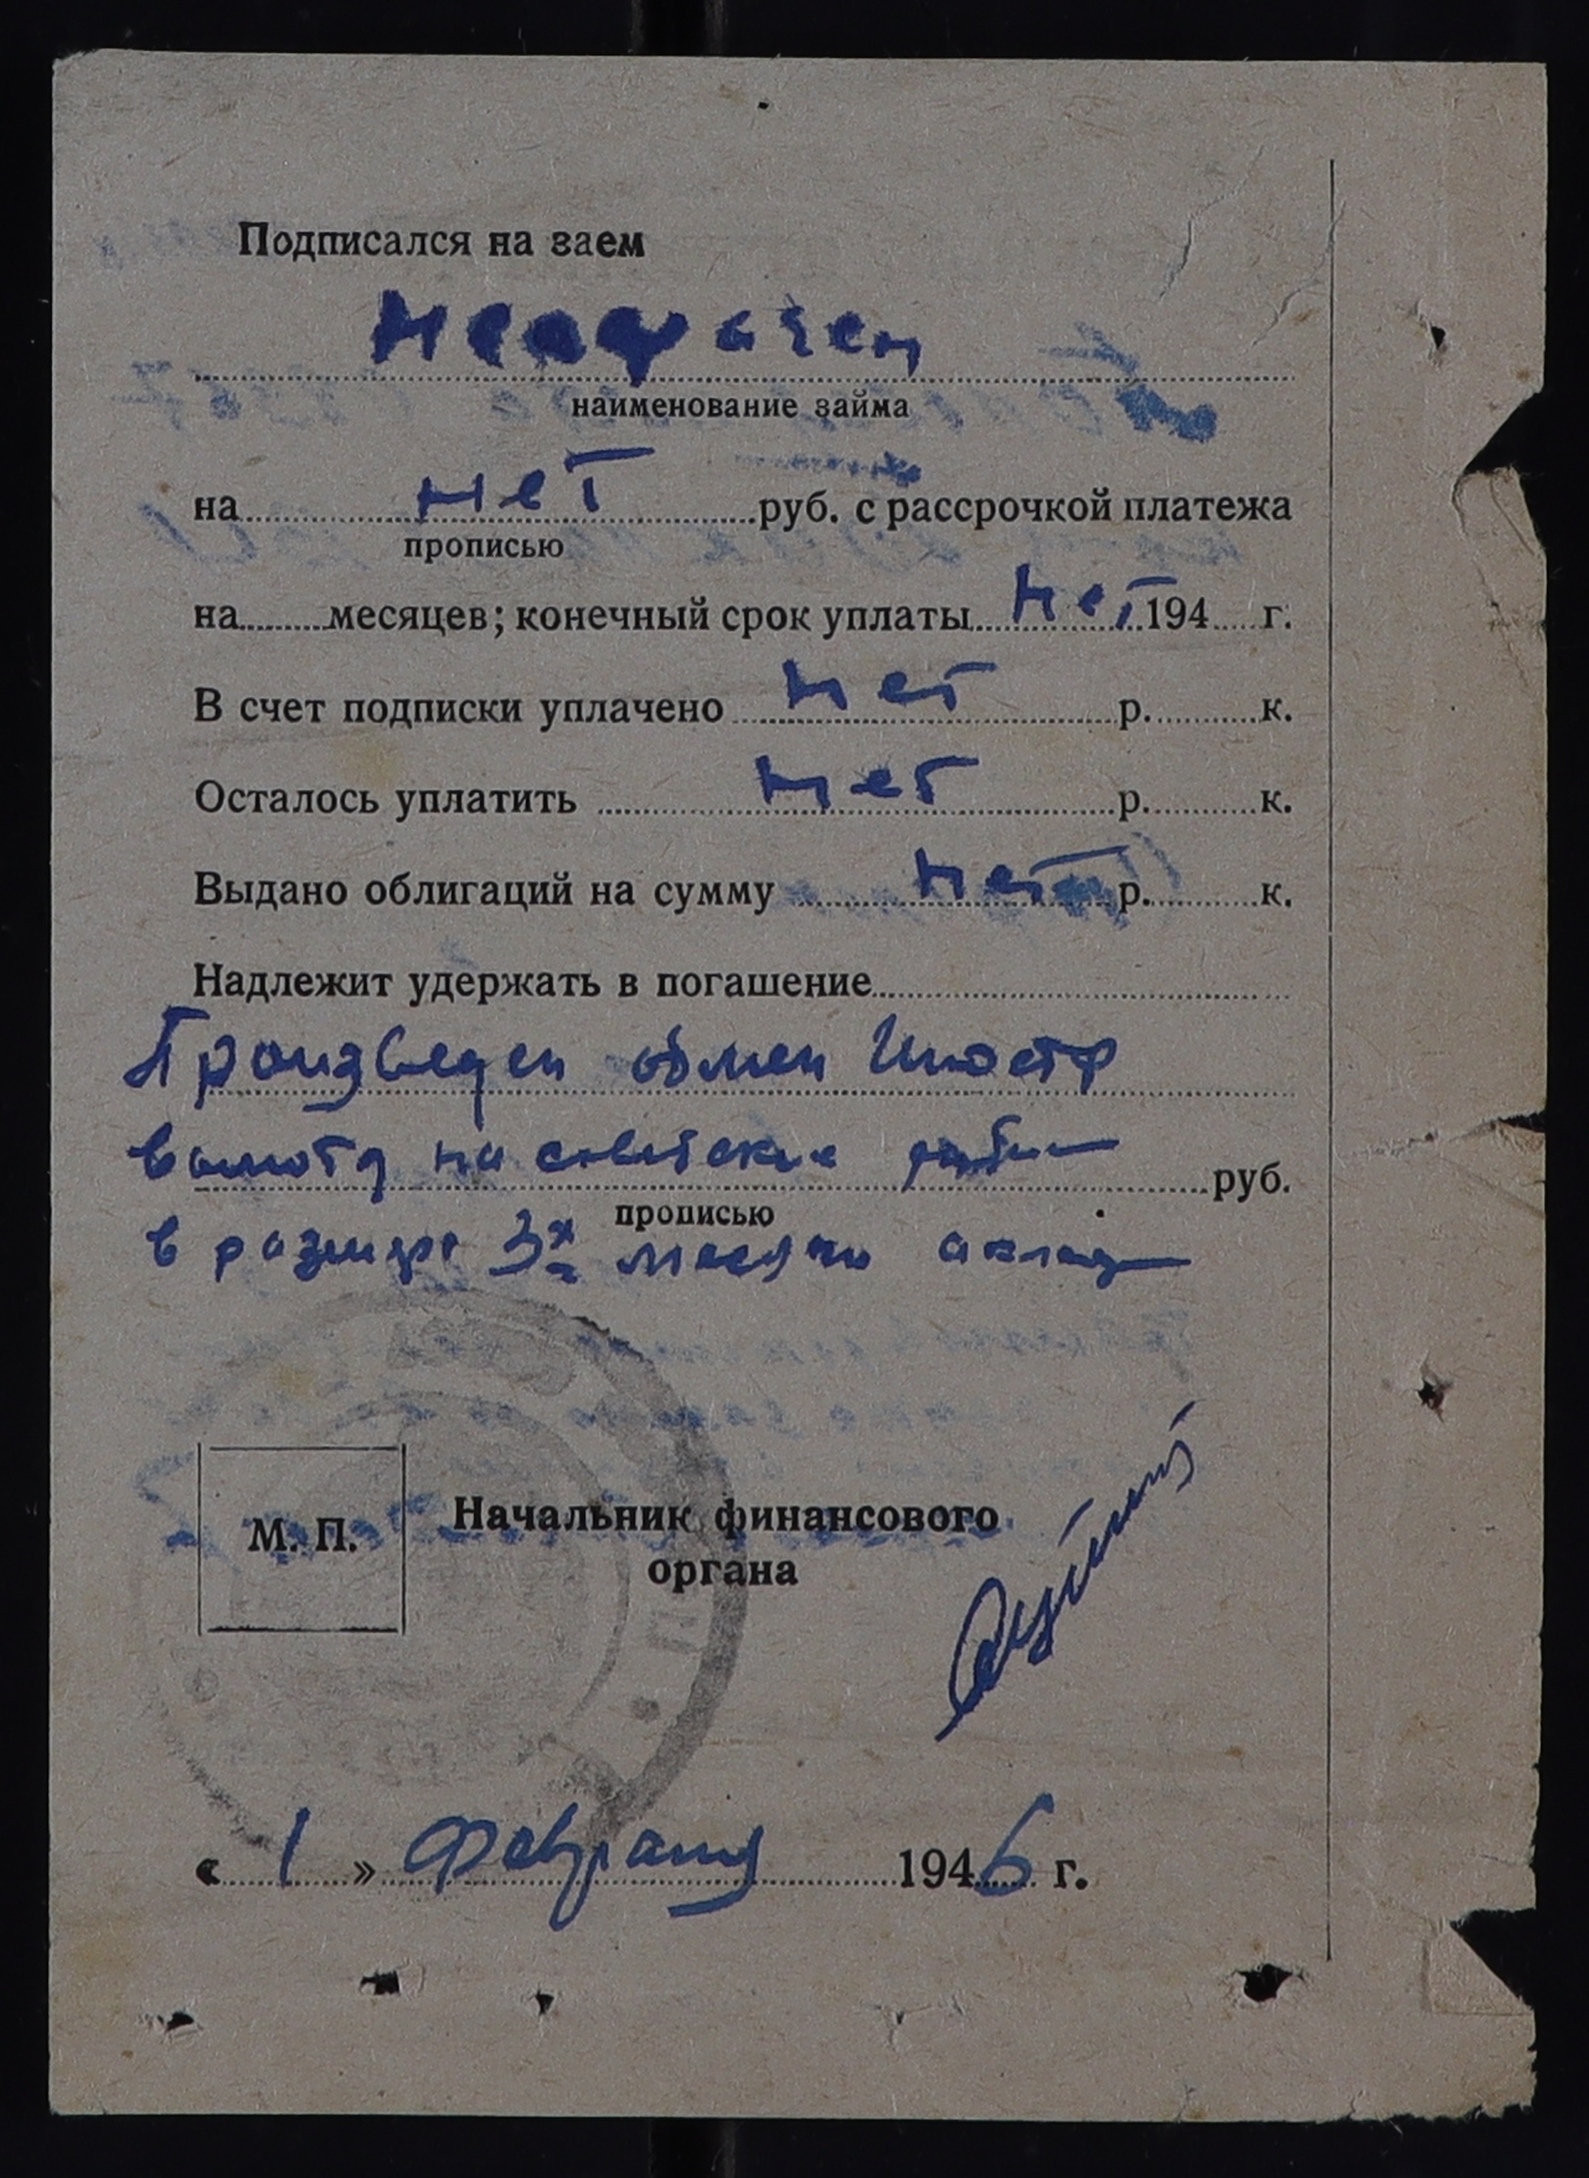 Подписался на заем
не охвачен
наименование займа
на нет руб. с рассрочкой платежа
прописью
на месяцев; конечный срок уплаты нет 194 г.
В счет подписки уплачено нет р. к.
Осталось уплатить нет р. к.
Выдано облигаций на сумму нет р. к.
Надлежит удержать в погашение
Произведен обмен Иностр
валюты на советские рубли руб.
прописью
в размере 3х месячн оклад
М. П.
Начальник финансового
органа
« 1 » Февраля 1946 г.